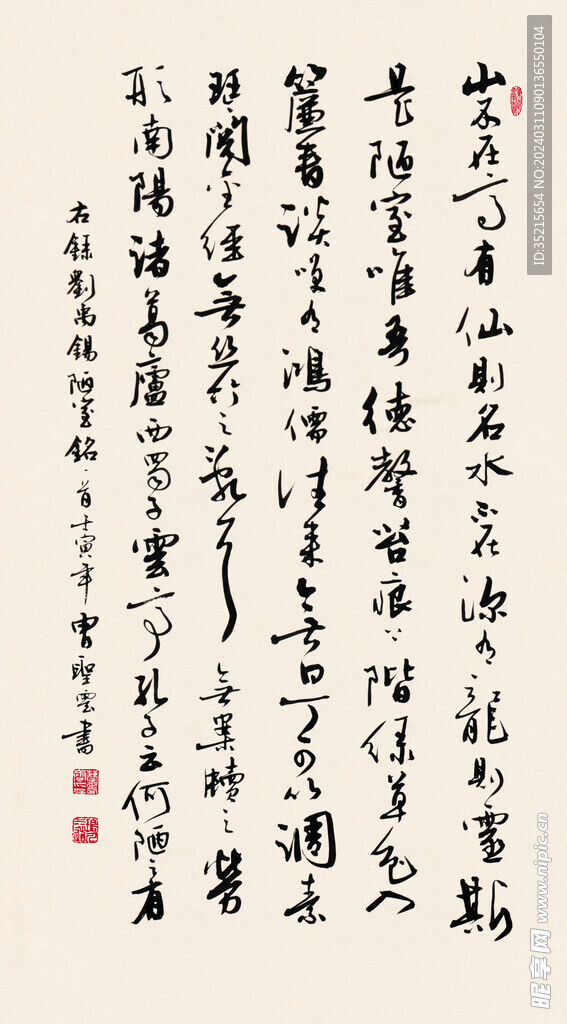 山不在高有仙則名水不在深有龍則靈斯
是陋室唯吾德馨苔痕上階綠草色入
簾青談笑有鴻儒往來無白丁可以調素
琴閱金經無絲竹之亂耳無案牘之勞
形南陽諸葛廬西蜀子雲亭孔子云何陋之有
右録劉禹錫陋室銘一首壬寅年曹聖雲書
ID:35215654 NO:20240311090136550104
昵享网 www.nipic.cn